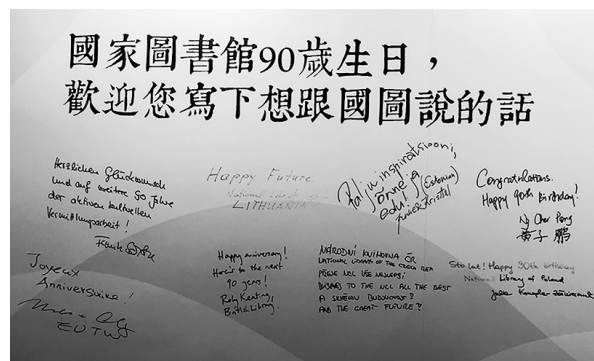 國家圖書館90歲生日，
歡迎您寫下想跟國圖說的話
Herzlichen Glückwunsch
und auf weitere 90 Jahre
der aktiven kulturellen
Vermittlungsarbeit!
Happy Future
National
LITHUANIA
Palju inspiratsiooni,
õnne ja
edu! (Estonian)
Congratulations.
Happy 90th Birthday!
Ng Cher Pong
黃子鵬
Joyeux
Anniversaire!
EUTW
Happy anniversary!
Here's to the next
90 years!
Roly Keating,
British Library.
NÁRODNÍ KNIHOVNA ČR
NATIONAL LIBRARY OF THE CZECH REP.
PŘEJE NCL VŠE NEJLEPŠÍ
WISHES TO THE NCL ALL THE BEST
A SKVĚLOU BUDOUCNOST!
AND THE GREAT FUTURE!
Sto lat! Happy 90th birthday
National Library of Poland